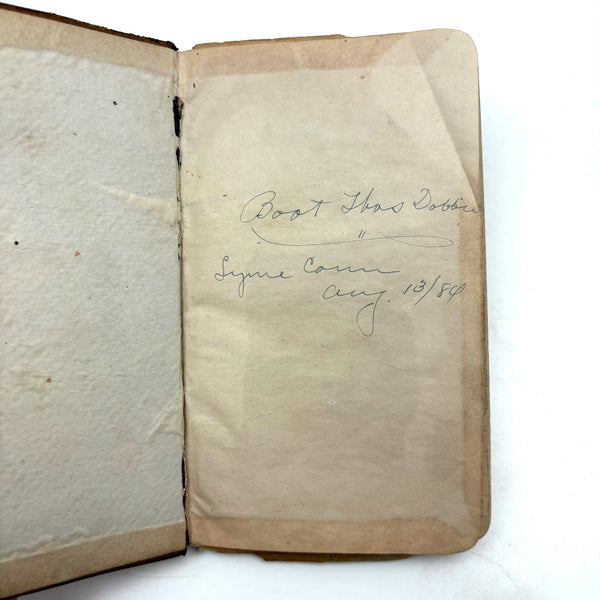 Boat Thos Dobbie
"
Lyme Conn
Aug. 13/84